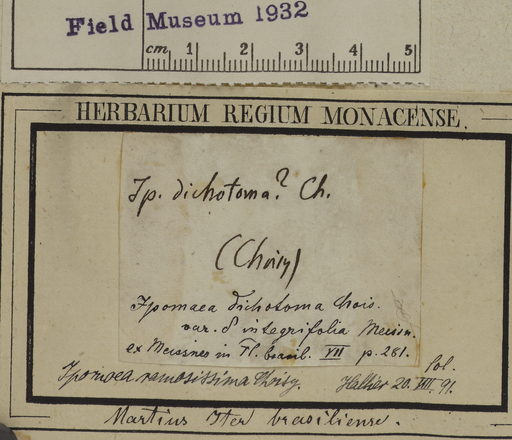 Field Museum 1932
cm 1 2 3 4 5
HERBARIUM REGIUM MONACENSE.
Ip. dichotoma? Ch.
(Choisy)
Ipomaea dichotoma Chois.
var. δ integrifolia Meissn.
ex Meissner in Fl. brasil. VII p. 281.
Ipomoea ramosissima Choisy. Hallier 20. VIII. 91.
Martius Iter brasiliense.